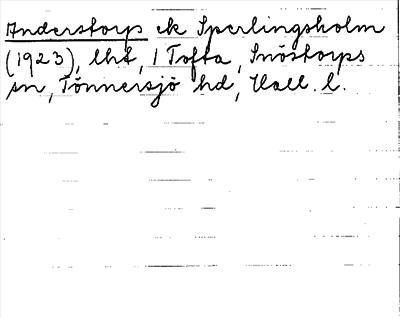 Anderstorps ek Sperlingsholm
(1923), lht, 1 Tofta, Snöstorps
sn, Tönnersjö hd, Hall. l.